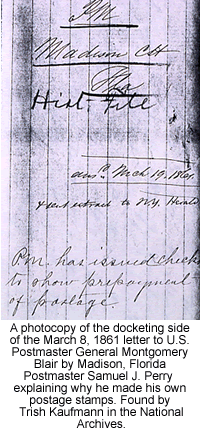 PM
Madison CH
Fla
Hist. File
ansd. Mch 19. 1861
& sent extract to N.Y. Herald
Pm. has issued checks
to show prepayment
of postage.
A photocopy of the docketing side
of the March 8, 1861 letter to U.S.
Postmaster General Montgomery
Blair by Madison, Florida
Postmaster Samuel J. Perry
explaining why he made his own
postage stamps. Found by
Trish Kaufmann in the National
Archives.